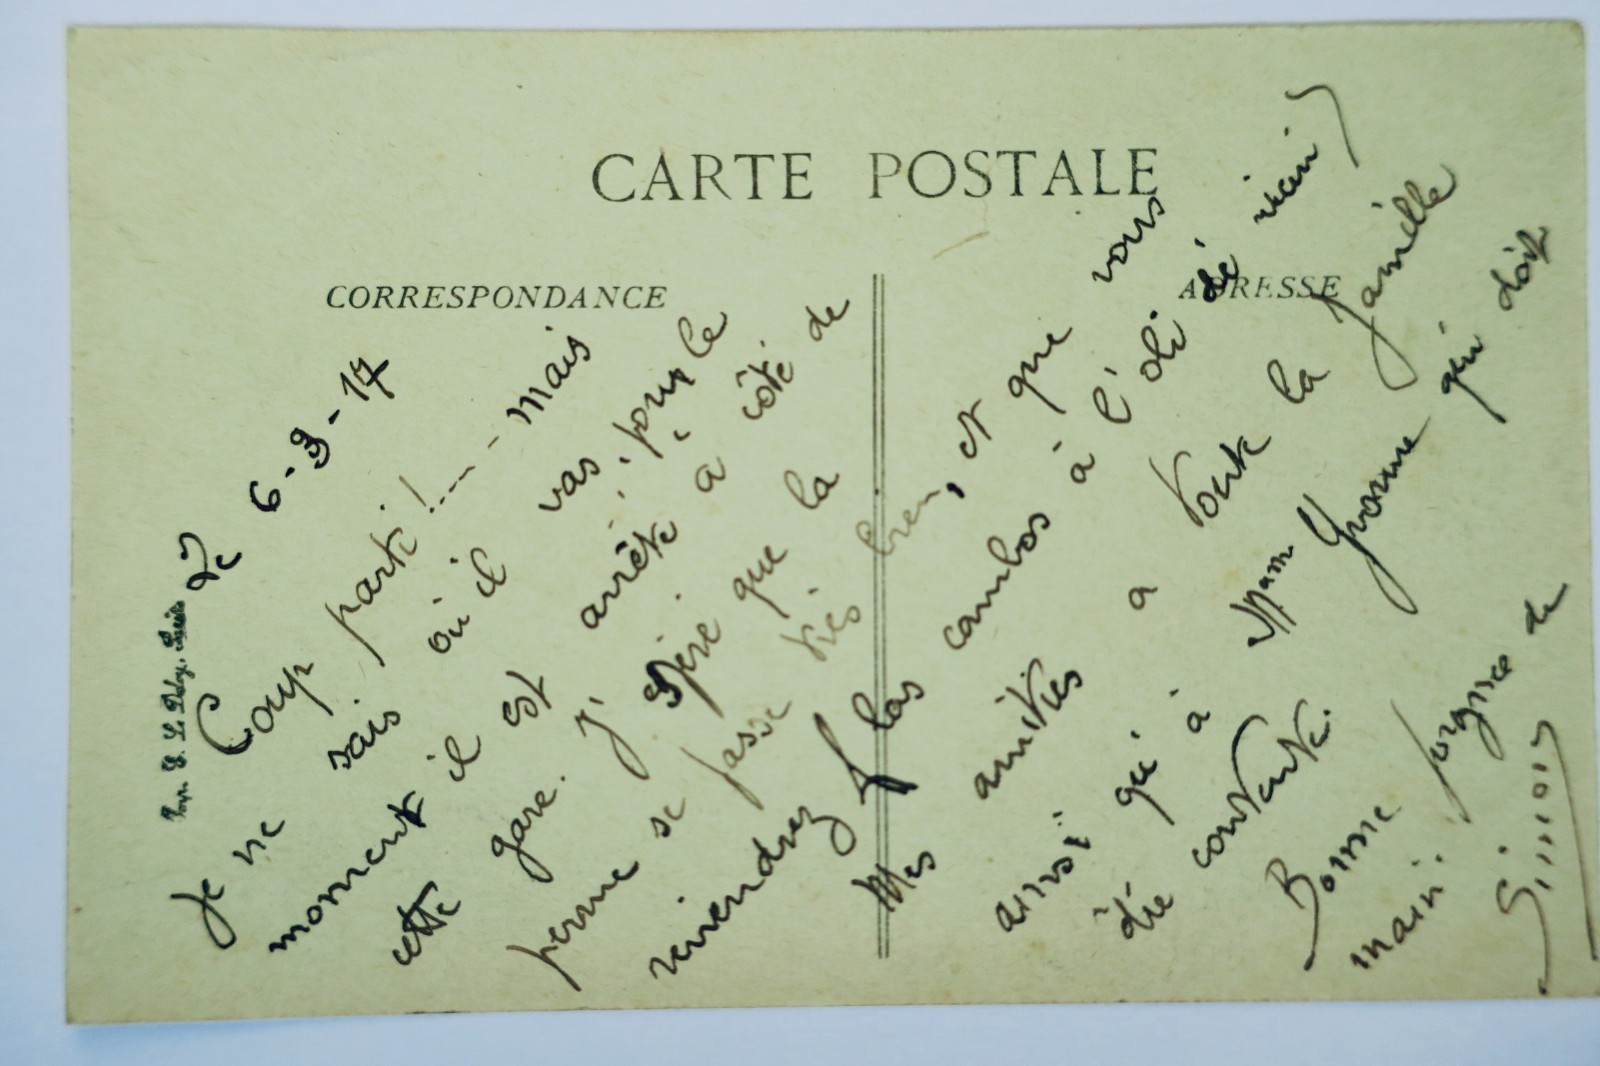 CARTE POSTALE
CORRESPONDANCE
ADRESSE
Le 6-3-17
Coup parti!---- mais
Je ne sais où il vas. pour le
moment il est arrêté à côté de
cette gare. J'espère que la
perme se passe très bien, et que vous
reviendrez
Mes amitiés a toute la famille
ainsi qu'à Mme Yvonne qui doit
être contente.
Bonne poignée de
main.
Simon